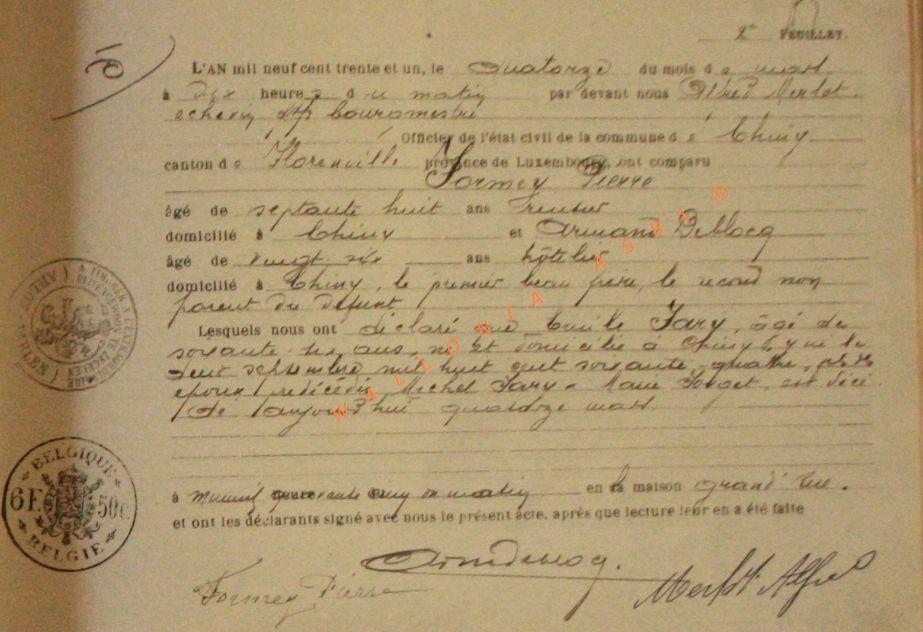 2e FEUILLET.
L'AN mil neuf cent trente et un, le quatorze du mois de mars
à dix heures du matin par devant nous Alfred Merlot
echevin ff bourgmestre
Officier de l'état civil de la commune de Chiny
canton de Florenville province de Luxembourg, ont comparu
Formey Pierre
âgé de septante huit ans
domicilié à Chiny et Armand Deblocq
âgé de vingt six ans hôtelier
domicilié à Chiny, le premier beau frère, le second non
parent du défunt
Lesquels nous ont déclaré que Jary, âgé de
soixante six ans, né et domicilié à Chiny, y né le
septembre mil huit cent soixante quatre,
époux prédécédés Michel Jary - Marie est décédé
aujourd'hui quatorze mars
à matin en la maison grand'rue.
et ont les déclarants signé avec nous le présent acte, après que lecture leur en a été faite
Armdeblocq.
Formey Pierre
Merlot Alfred
BELGIQUE
6F. 50c
BELGIE
WALLONIA ASBL ©